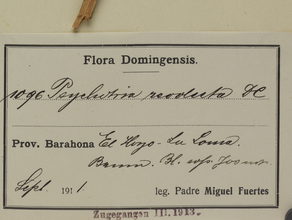 Flora Domingensis.
1096 Psychotria revoluta DC
Prov. Barahona El Hoyo - La Loma.
Sept. 1911 leg. Padre Miguel Fuertes
Zugegangen III. 1913.